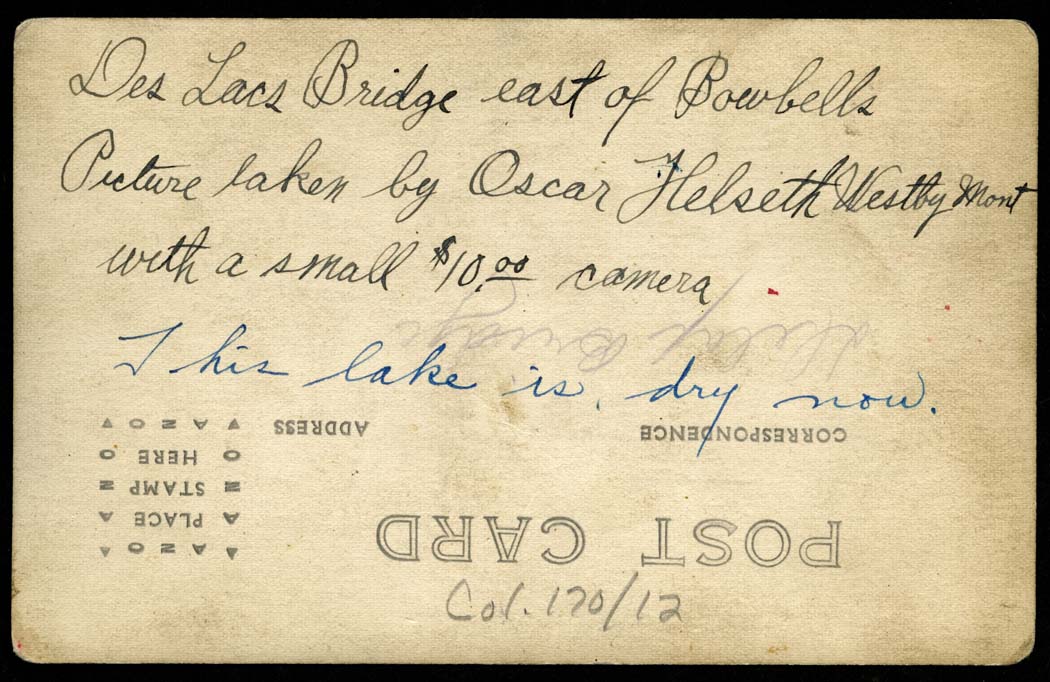 Des Lacs Bridge east of Bowbells
Picture taken by Oscar Helseth Westby Mont
with a small $10.00 camera
Bridge
This lake is, dry now.
CORRESPONDENCE
ADDRESS
POST CARD
AZO
PLACE
STAMP
HERE
AZO
Col. 170/12